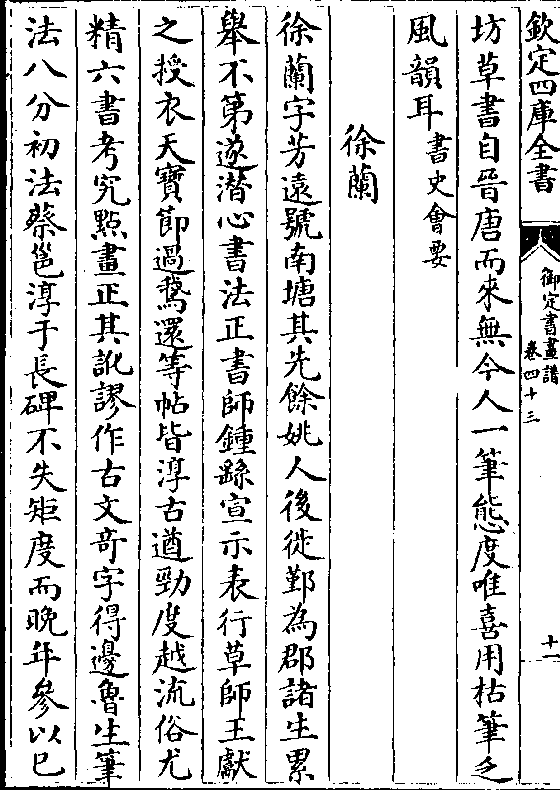 欽定四庫全書
御定書畫譜
卷四十三
十一
坊草書自晉唐而來無今人一筆態度唯喜用枯筆乏
風韻耳書史會要
徐蘭
徐蘭字芳遠號南塘其先餘姚人後徙鄞為郡諸生累
舉不第遂潛心書法正書師鍾繇宣示表行草師王獻
之授衣天寶節過鵞還等帖皆淳古遒勁度越流俗尤
精六書考究點畫正其訛謬作古文竒字得邊魯生筆
法八分初法蔡邕淳于長碑不失矩度而晚年參以己